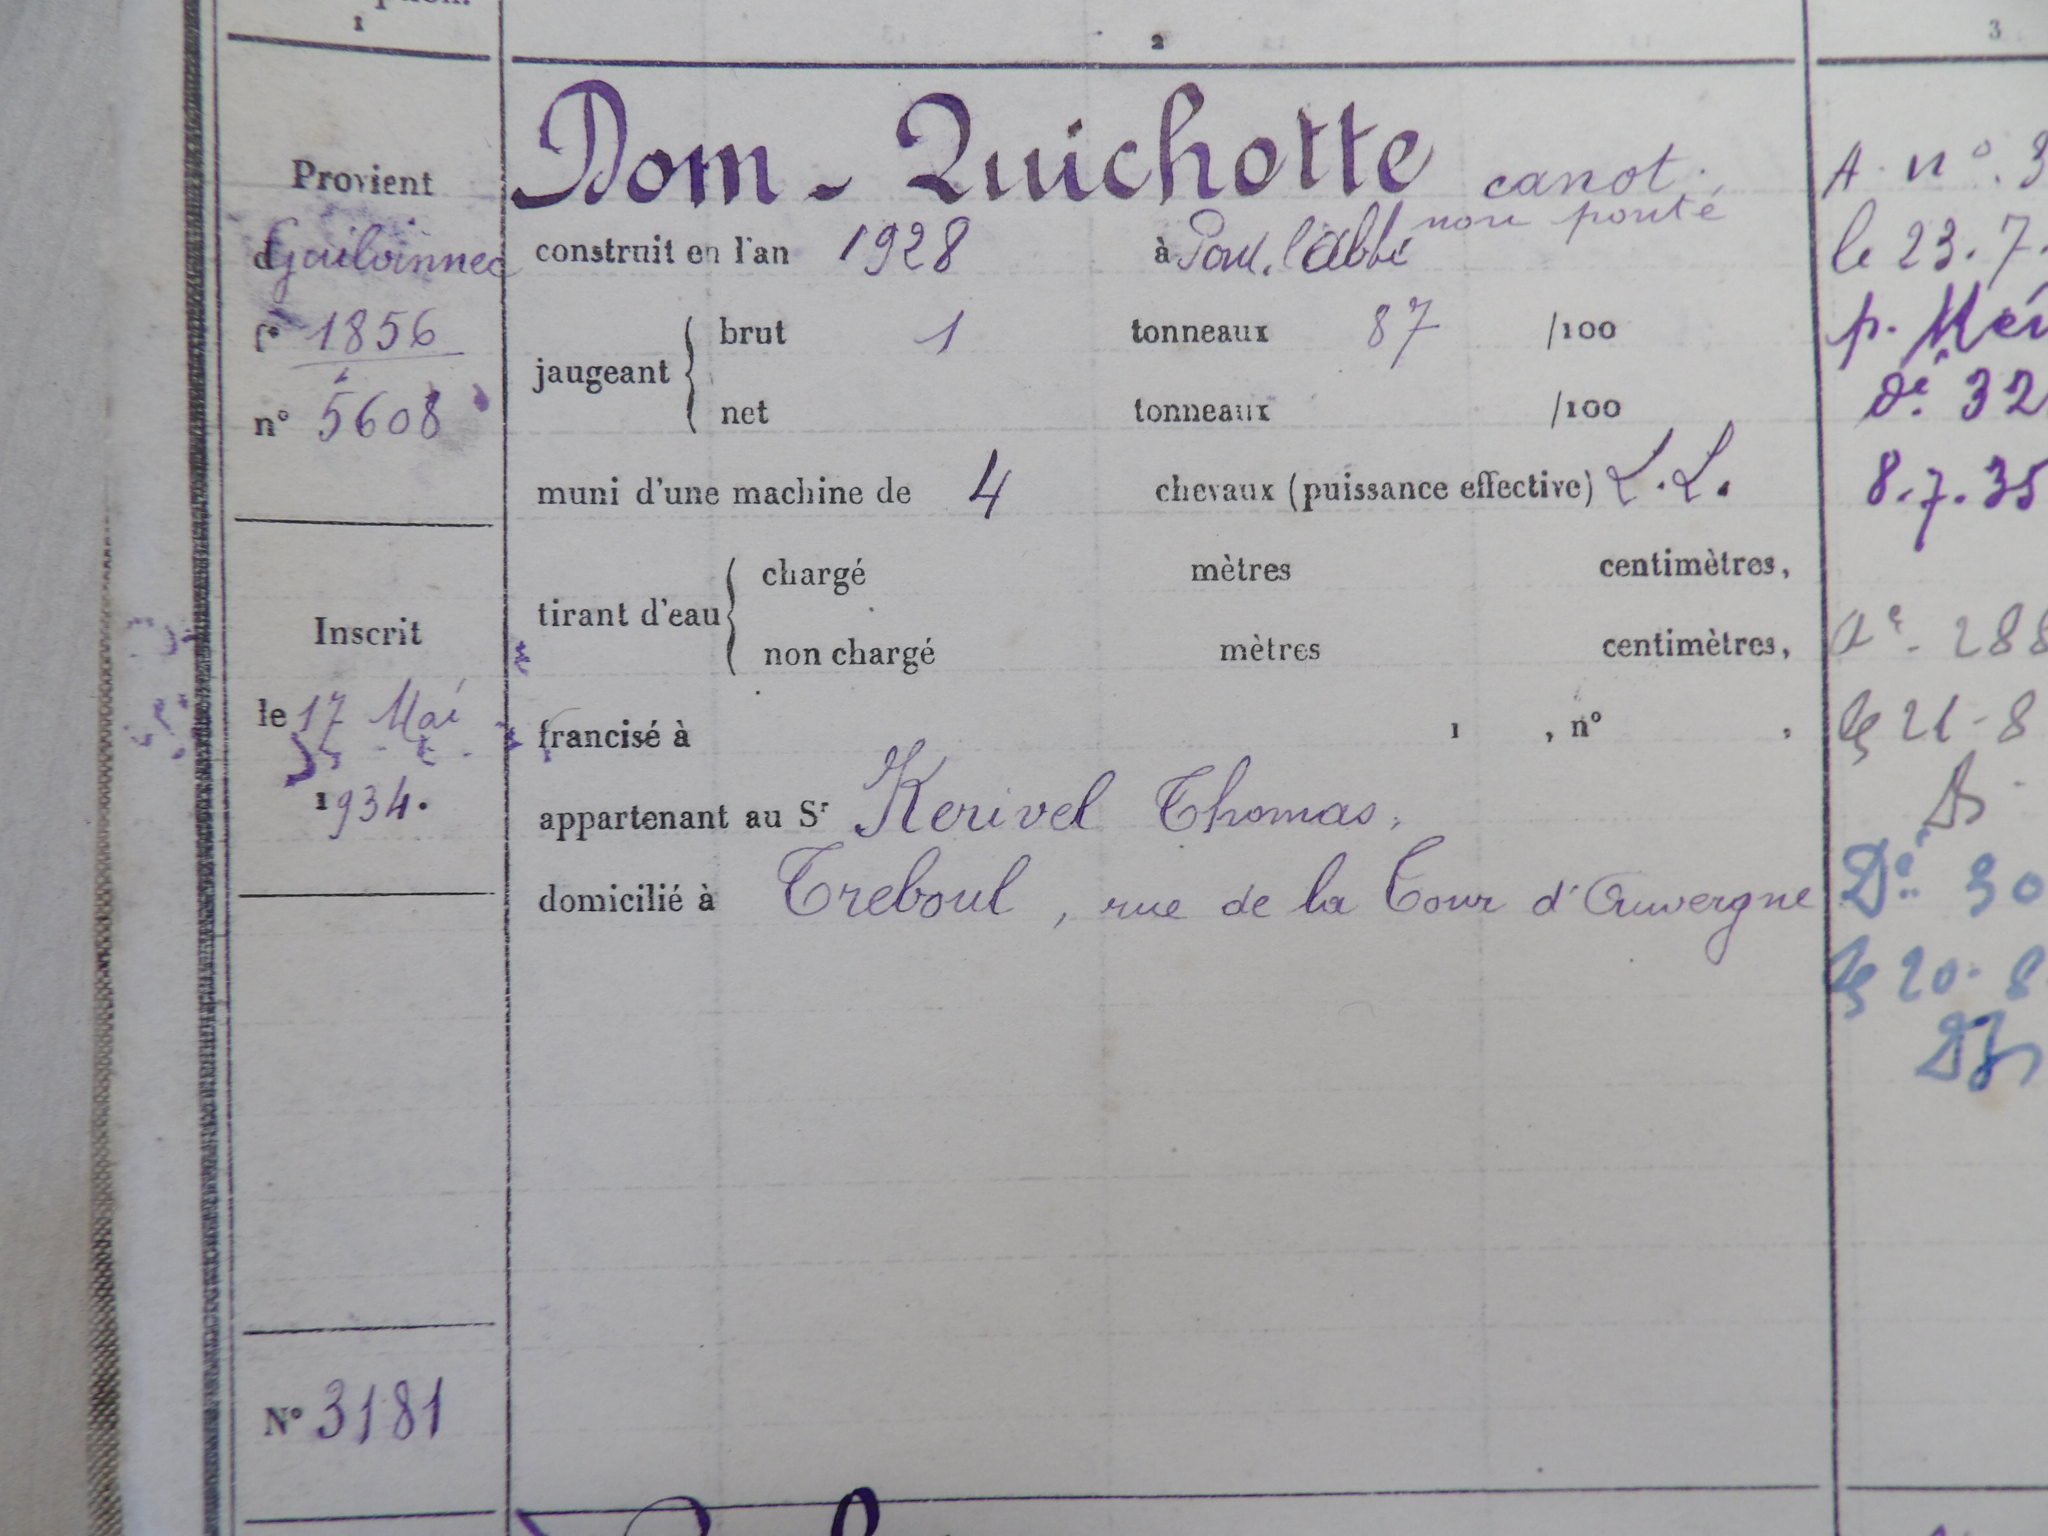 1
2
3
Provient
Dom-Quichotte canot
non ponté
d Guilvinnec
construit en l'an 1928 à Pont. l'abbé
f° 1856
n° 5608
jaugeant brut 1 tonneaux 87 /100
net tonneaux /100
muni d'une machine de 4 chevaux (puissance effective) L.L.
tirant d'eau chargé mètres centimètres,
non chargé mètres centimètres,
Inscrit
le 17 Mai
1934.
francisé à , n° ,
appartenant au Sr Kerivel Thomas,
domicilié à Treboul, rue de la Tour d'Auvergne
N° 3181
A. n°. 3
le 23.7.
p.
De. 32
8.7.35
288
21-8
De. 30
20-8